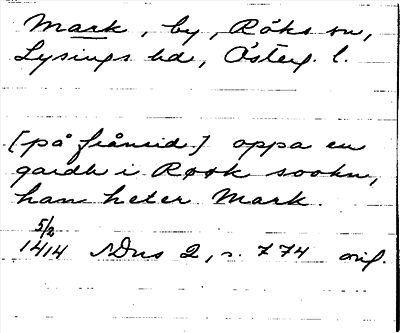 Mark, by, Röks sn,
Lysings hd, Österg. l.
[på frånsid.] oppa en
gardh i Røøk sookn,
han heter Mark.
5/2
1414 SDns 2, s. 774 orig.